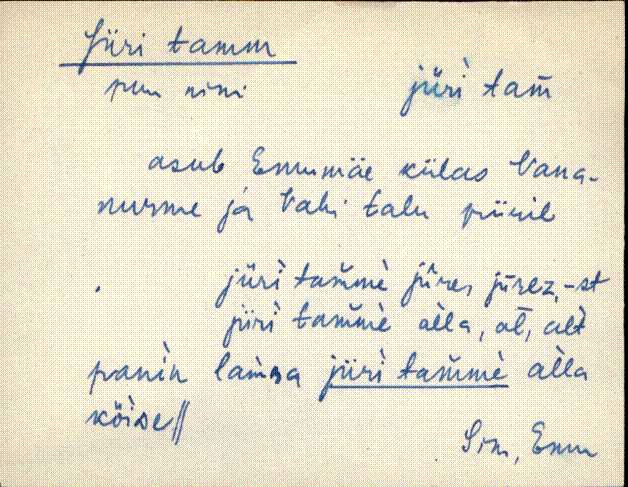 Jüri tamm
puu nimi jüri tam̄
asub Emumäe külas Vana-
nurme ja Vahi talu piiril
jüri tam̆mè jūres, jūrez, -st
jüri tam̆mè àlla, al̄, al̀t
panìn lam̀ma jüri tam̆mè àlla
köìse ||
Sim, Emu